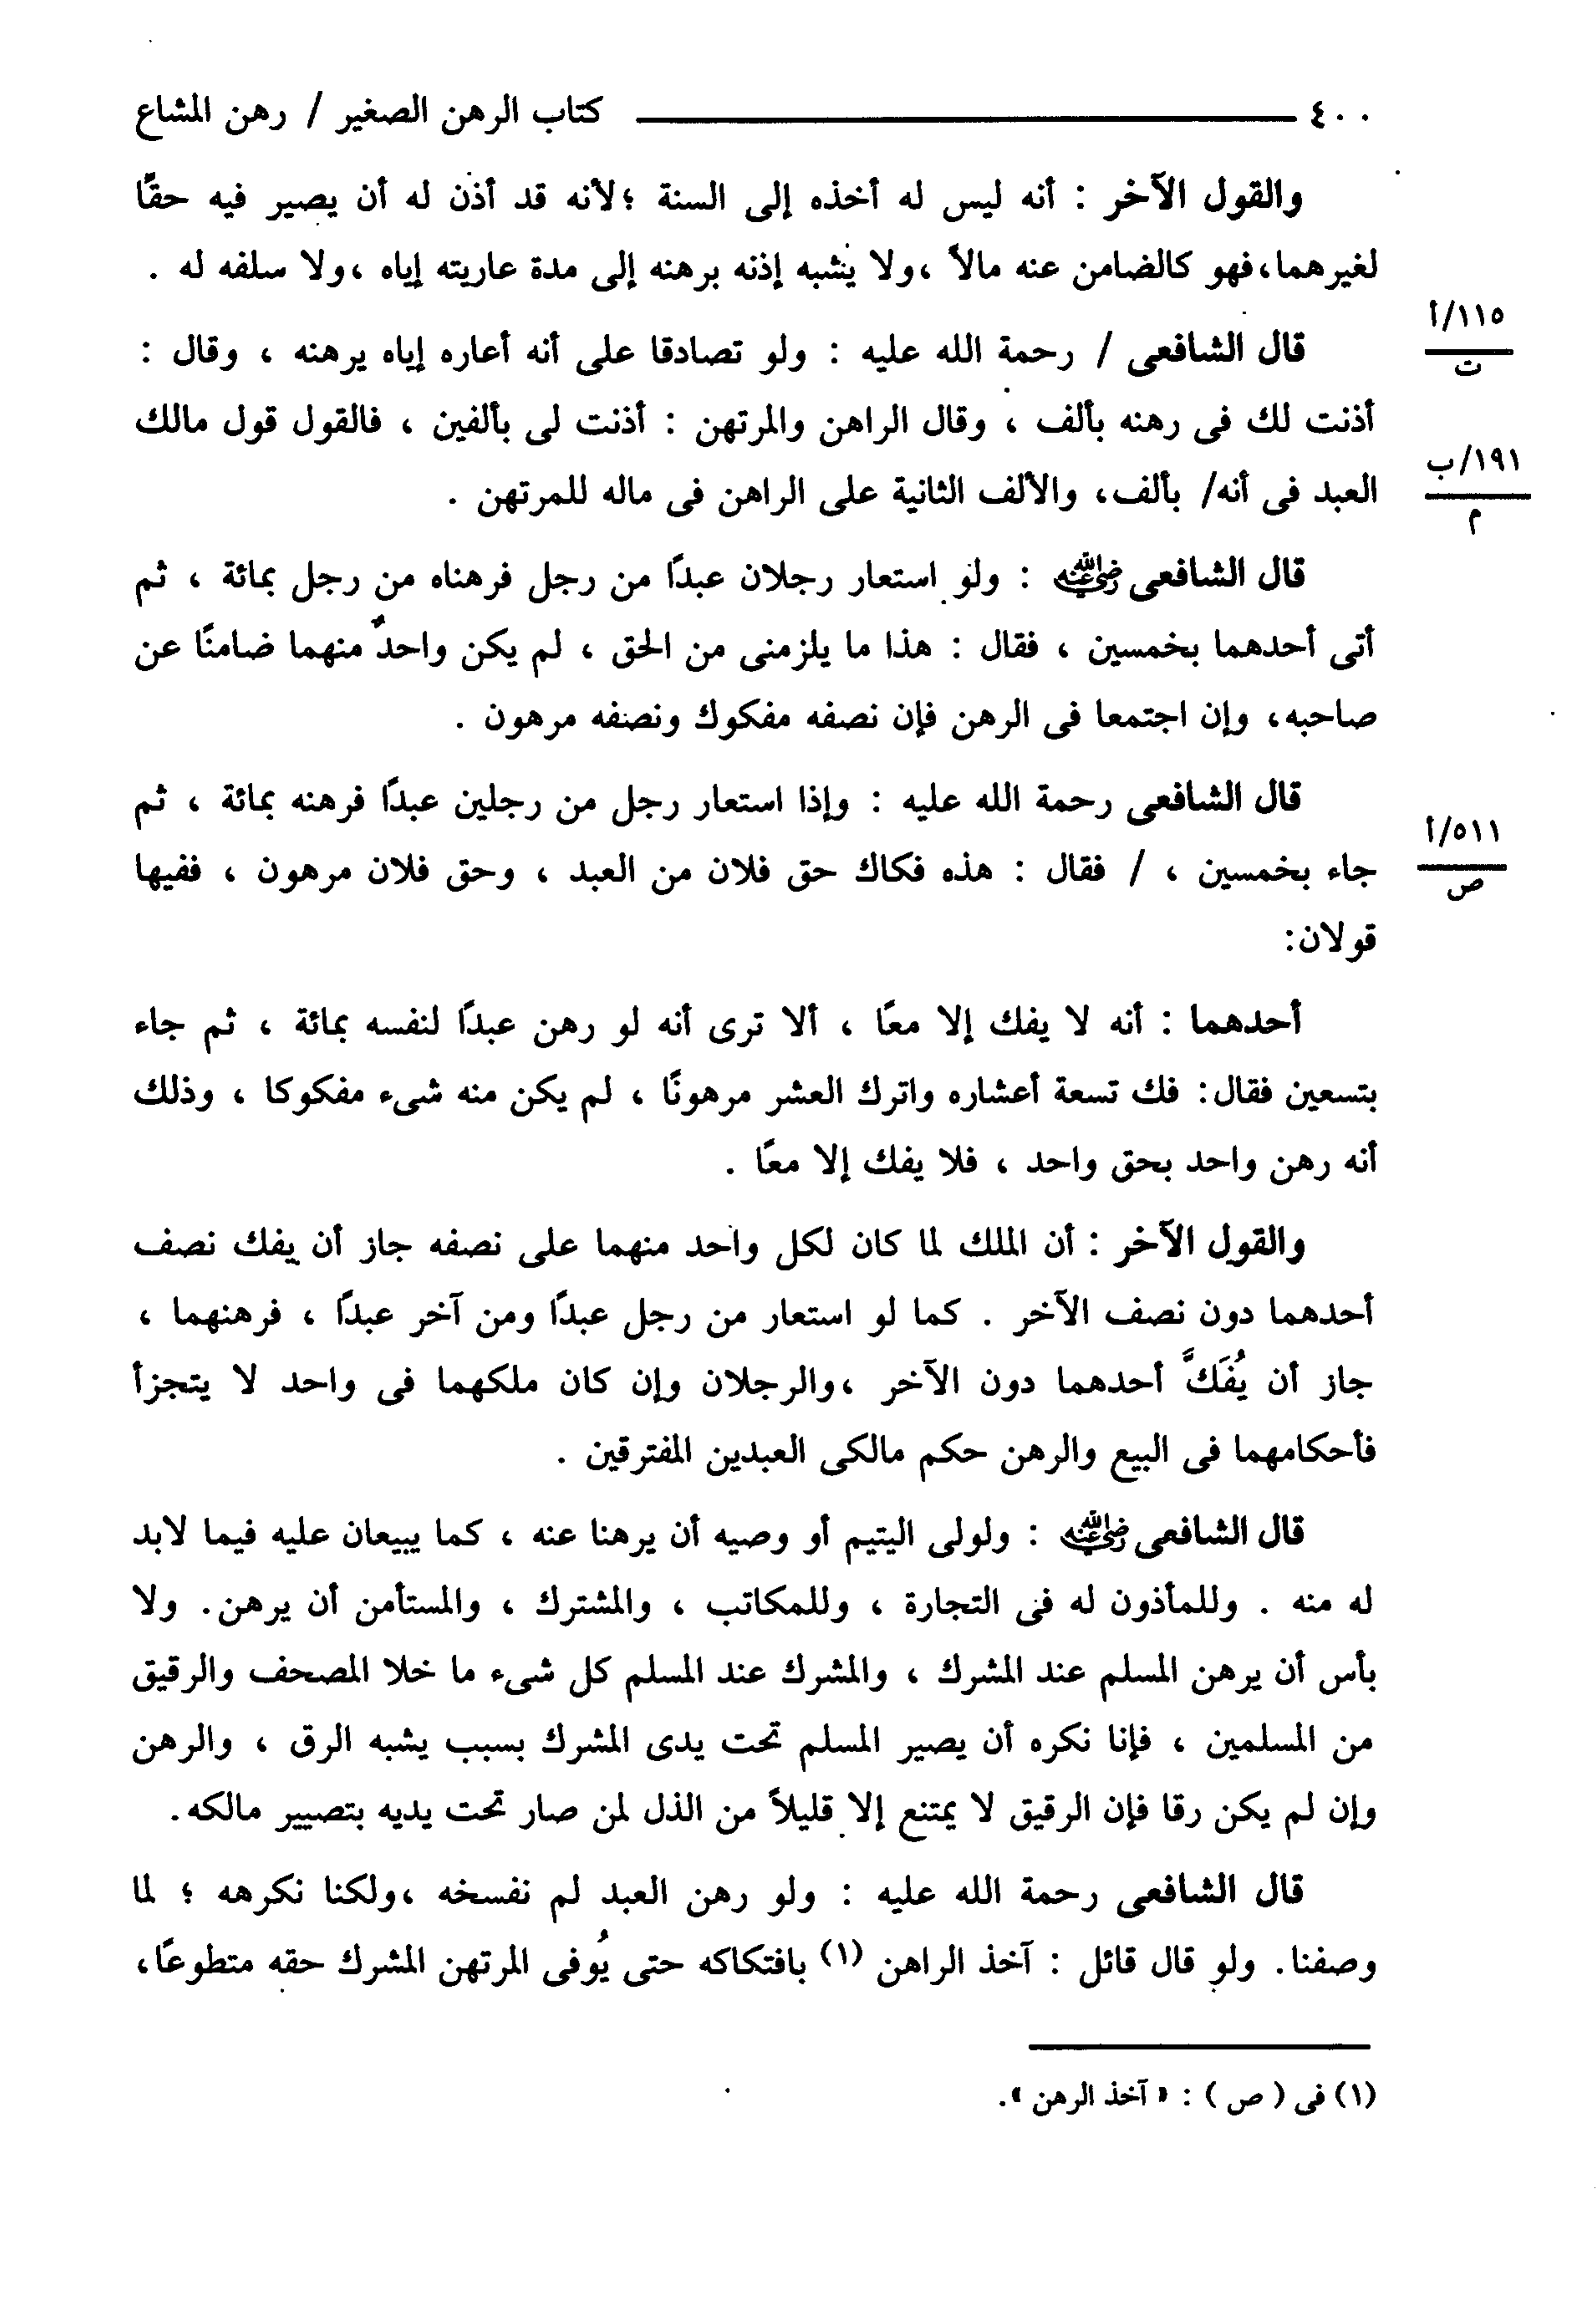 ٤٠٠ كتاب الرهن الصغير / رهن المشاع
والقول الآخر : أنه ليس له أخذه إلى السنة ؛لأنه قد أذن له أن يصير فيه حقًا
لغيرهما،فهو كالضامن عنه مالاً ،ولا يشبه إذنه برهنه إلى مدة عاريته إياه ،ولا سلفه له .
١١٥/أ
ت
قال الشافعى / رحمة الله عليه : ولو تصادقا على أنه أعاره إياه يرهنه ، وقال :
أذنت لك فى رهنه بألف ، وقال الراهن والمرتهن : أذنت لى بألفين ، فالقول قول مالك
١٩١/ب
م
العبد فى أنه/ بألف، والألف الثانية على الراهن فى ماله للمرتهن .
قال الشافعى رضي الله عنه : ولو استعار رجلان عبدًا من رجل فرهناه من رجل بمائة ، ثم
أتى أحدهما بخمسين ، فقال : هذا ما يلزمنى من الحق ، لم يكن واحدٌ منهما ضامنًا عن
صاحبه، وإن اجتمعا فى الرهن فإن نصفه مفكوك ونصفه مرهون .
قال الشافعى رحمة الله عليه : وإذا استعار رجل من رجلين عبدًا فرهنه بمائة ، ثم
٥١١/أ
ص
جاء بخمسين ، / فقال : هذه فكاك حق فلان من العبد ، وحق فلان مرهون ، ففيها
قولان:
أحدهما : أنه لا يفك إلا معًا ، ألا ترى أنه لو رهن عبدًا لنفسه بمائة ، ثم جاء
بتسعين فقال: فك تسعة أعشاره واترك العشر مرهونًا ، لم يكن منه شىء مفكوكا ، وذلك
أنه رهن واحد بحق واحد ، فلا يفك إلا معًا .
والقول الآخر : أن الملك لما كان لكل واحد منهما على نصفه جاز أن يفك نصف
أحدهما دون نصف الآخر . كما لو استعار من رجل عبدًا ومن آخر عبدًا ، فرهنهما ،
جاز أن يُفَكَّ أحدهما دون الآخر ،والرجلان وإن كان ملكهما فى واحد لا يتجزأ
فأحكامهما فى البيع والرهن حكم مالكى العبدين المفترقين .
قال الشافعى رضي الله عنه : ولولى اليتيم أو وصيه أن يرهنا عنه ، كما يبيعان عليه فيما لابد
له منه . وللمأذون له فى التجارة ، وللمكاتب ، والمشترك ، والمستأمن أن يرهن. ولا
بأس أن يرهن المسلم عند المشرك ، والمشرك عند المسلم كل شىء ما خلا المصحف والرقيق
من المسلمين ، فإنا نكره أن يصير المسلم تحت يدى المشرك بسبب يشبه الرق ، والرهن
وإن لم يكن رقا فإن الرقيق لا يمتنع إلا قليلاً من الذل لمن صار تحت يديه بتصيير مالكه.
قال الشافعى رحمة الله عليه : ولو رهن العبد لم نفسخه ،ولكنا نكرهه ؛ لما
وصفنا. ولو قال قائل : آخذ الراهن (١) بافتكاكه حتى يُوفى المرتهن المشرك حقه متطوعًا،
(١) فى ( ص ) : « آخذ الرهن ».